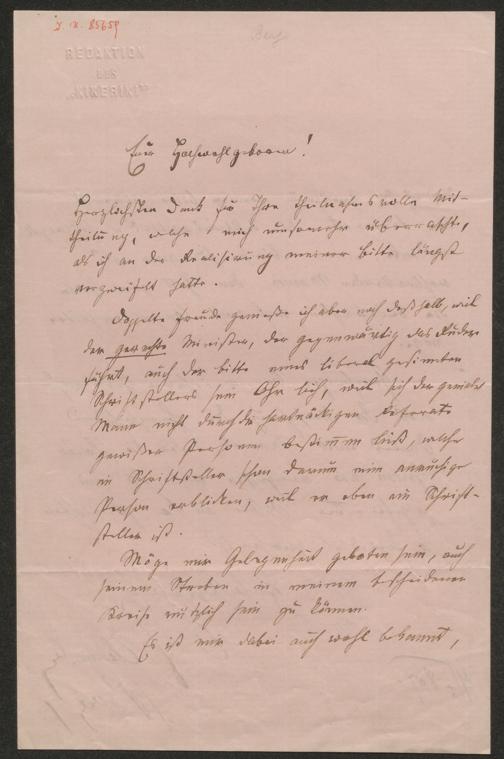 J. N. 85659
Berg
REDAKTION
DES
„KIKERIKI“
Euer Hochwohlgeboren!
Herzlichsten Dank für Ihre theilnahmsvolle Mit-
theilung, welche mich umsomehr überraschte,
als ich an der Realisirung meiner Bitte längst
verzweifelt hatte.
Doppelte Freude genieße ich aber noch deßhalb, weil
der gerechte Minister, der gegenwärtig das Ruder
führt, auch der Bitte eines liberal gesinnten
Schriftstellers sein Ohr lieh, weil sich der geniale
Mann nicht durch die hartnäckigen Referate
gewisser Personen bestimmen ließ, welche
im Schriftsteller schon darum eine anrüchige
Person erblicken, weil er eben ein Schrift-
steller ist.
Möge mir Gelegenheit geboten sein, auch
seinem Streben in meinem bescheidenen
Kreise nützlich sein zu können.
Es ist mir dabei auch wohl bekannt,